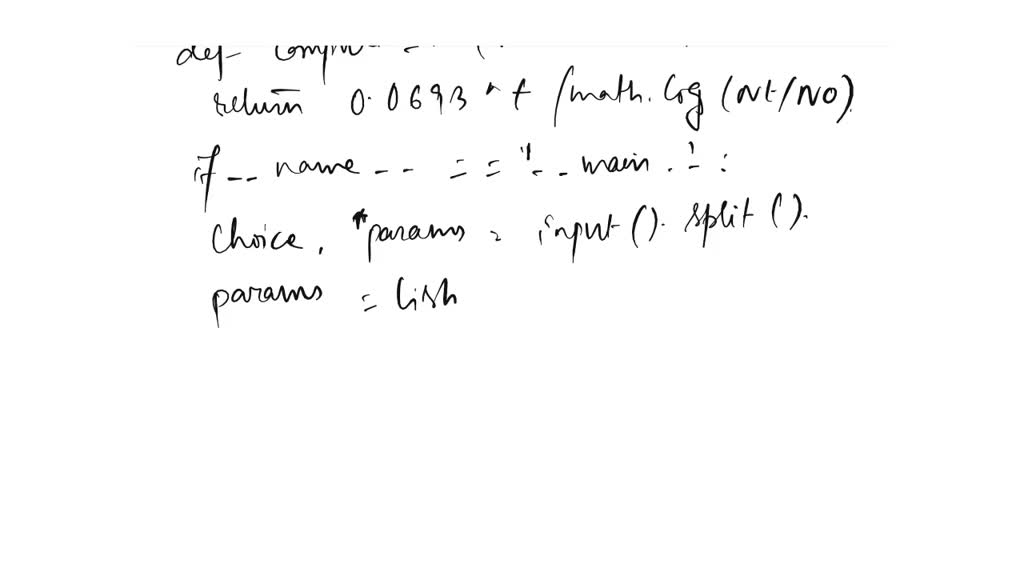 def
return 0.0693 * t / math.log (Nt/N0)
if __ name __ == "__ main __" :
choice, *params = input(). split ().
params = list